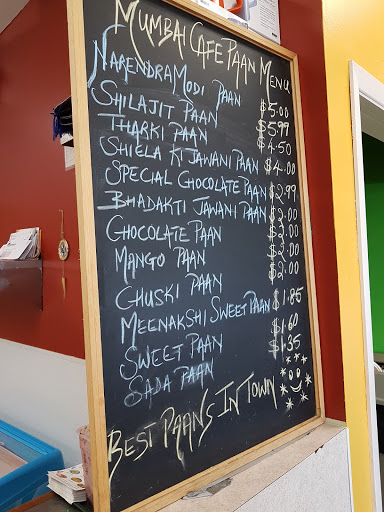 MUMBAI CAFE PAAN MENU
NARENDRA MODI PAAN $5.00
SHILAJIT PAAN $5.99
THARKI PAAN $4.50
SHIELA KI JAWANI PAAN $4.00
SPECIAL CHOCOLATE PAAN $2.99
BHADAKTI JAWANI PAAN $2.00
CHOCOLATE PAAN $2.00
MANGO PAAN $2.00
CHUSKI PAAN $2.00
MEENAKSHI SWEET PAAN $1.85
SWEET PAAN $1.60
SADA PAAN $1.35
BEST PAANS IN TOWN